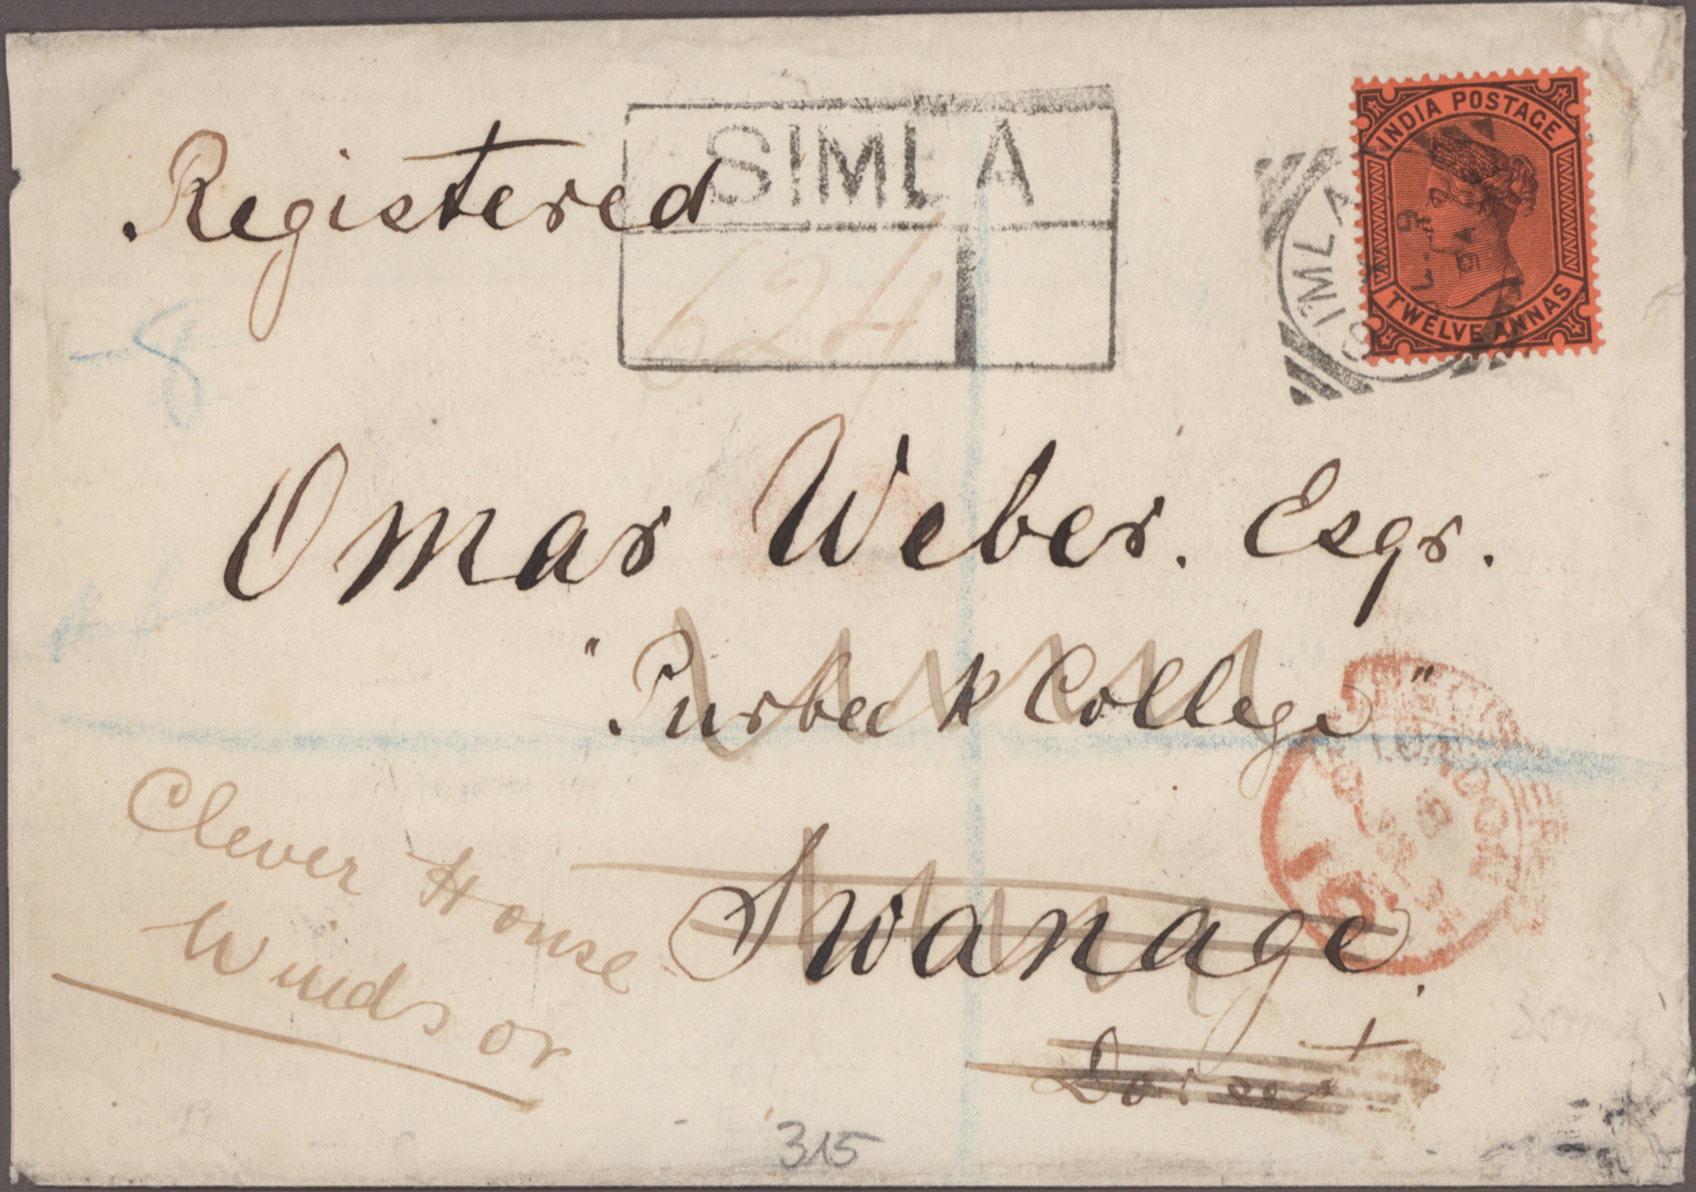 Registered
SIMLA
624
INDIA POSTAGE
TWELVE ANNAS
SIMLA
Omar Weber. Esqr.
"Purbeck College"
Swanage.
Dorset
Clever House
Windsor
REGISTERED
LONDON
315